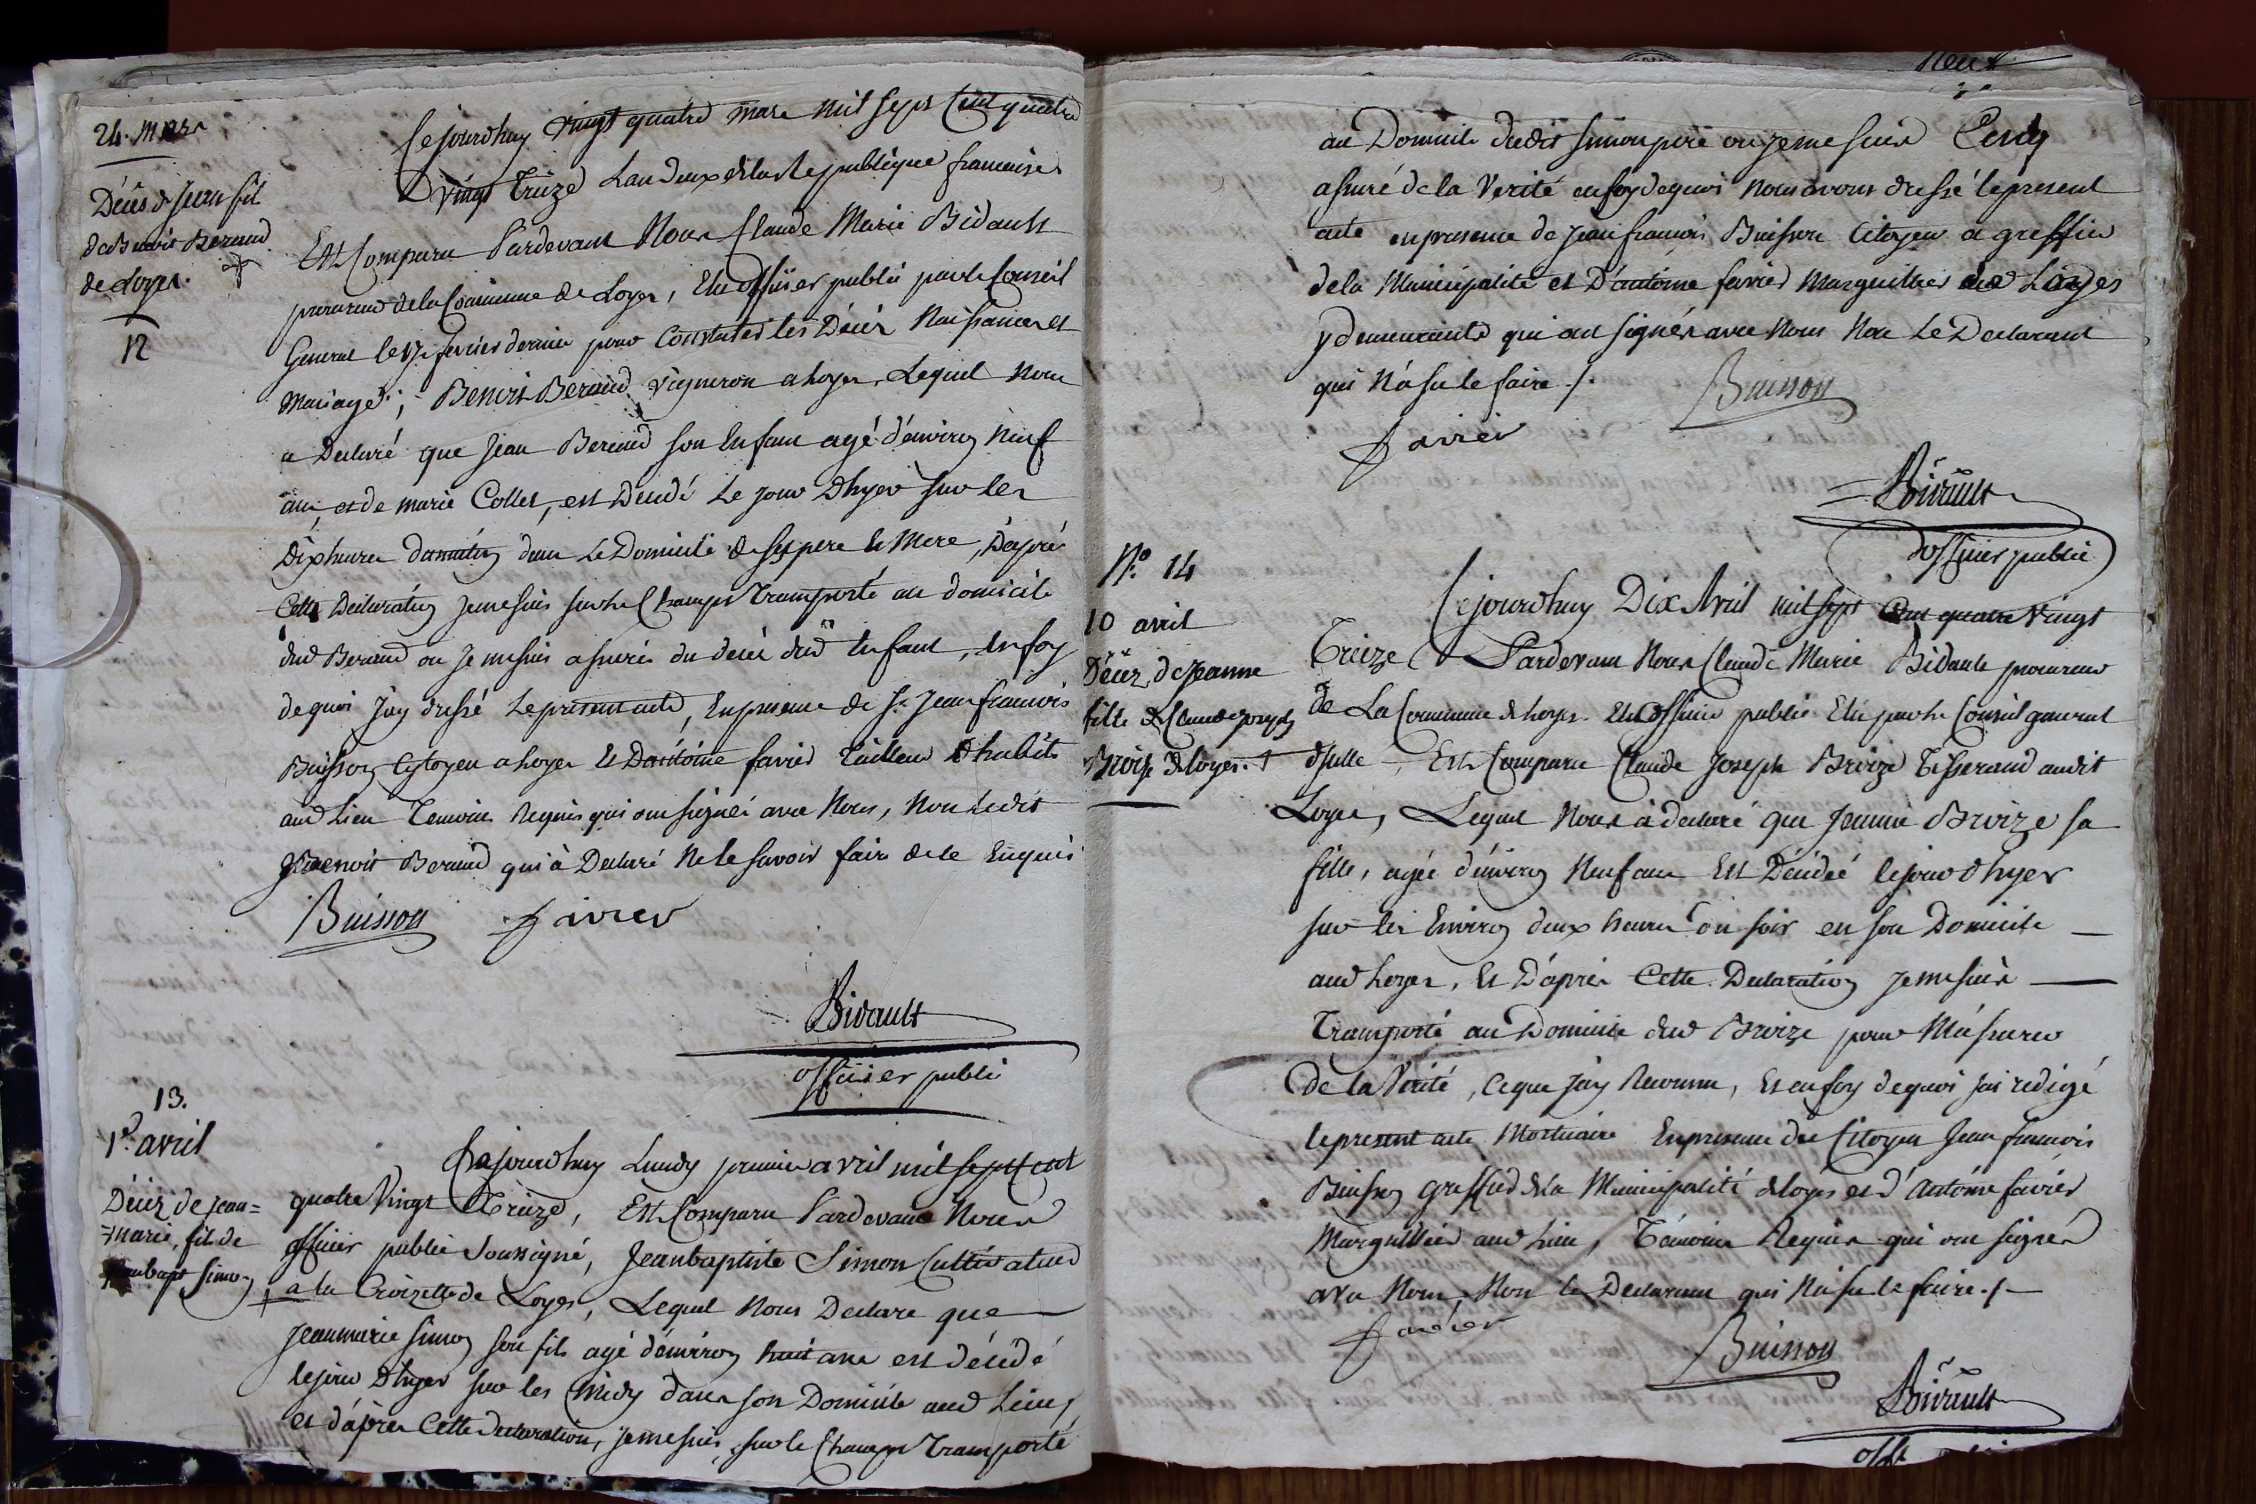 24. Mars
Décès de Jean fils
de Benoit Beraud
de Loyes.
12
Cejourdhuy vingt quatre mars mil sept Cent quatre
vingt Treize Lan deux de la Republique francaise
Est Comparu Pardevant Nous Claude Marie Bidault
procureur de la Commune de Loyes, Elu officier public par le Conseil
General le 17 fevrier dernier pour Constater les Décès Naissances et
Mariages; Benoit Beraud vigneron a Loyes, Lequel Nous
a Declaré que Jean Beraud son Enfant agé d'environ Neuf
ans, et de marie Collet, est Decedé Le jour Dhyer sur les
Dix heures du matin dans Le Domicile de ses pere Et Mere, D'après
Cette Declaration Jemesuis sur le Champs Transporté au domicile
dud Beraud ou Je me suis assuré du décès dud Enfant, En foy
dequoi J'ay dressé Le present acte, En presence de Sr Jean francois
Buisson Cytoyen a Loyes Et D'antoine favier Tailleur d'habits
aud Lieu Temoins Requis qui ont signés avec Nous, Non Ledit
Benoit Beraud qui à Declaré Ne le savoir faire de ce Enquis
Buisson favier
Bidault
officier public
13.
1er avril
Décès de jean=
=marie, fils de
jeanbapt Simon
Cejourdhuy Lundy premier avril mil sept cent
quatre Vingt Treize, Est Comparu Pardevant Nous
officier public Soussigné, Jeanbaptiste Simon Cultivateur
a la Croizette de Loyes, Lequel Nous Declare que
Jeanmarie Simon son fils agé d'environ huit ans est décédé
le jour Dhyer sur les Midy dans son Domicile aud Lieu,
et d'après Cette declaration, jemesuis, sur le Champs Transporté
Neuf
au Domicile dudit Simon pere ou jeme suis
assuré de la Verité en foy dequoi Nous avons dressé le present
acte en presence de Jean francois Buisson Citoyen a greffier
de la Municipalité et D'antoine favier Marguillier de Loyes
y demeurants qui ont signés avec Nous Non Le Declarant
qui N'a su le faire ./.
Buisson
favier
Bidault
officier public
No. 14
10 avril
Décès de Jeanne
fille de Claude joseph
Broize de Loyes.
Cejourdhuy Dix Avril mil sept Cent quatre Vingt
Treize Pardevant Nous Claude Marie Bidault procureur
de La Commune de Loyes Et officier public Elu par le Conseil general
d'icelle, Est Comparu Claude Joseph Broize Tisserand audit
Loyes, Lequel Nous à declaré que Jeanne Broize sa
fille, agée d'environ Neuf ans Est Décédée le jour dhyer
sur les Environ deux heures du soir en son Domicile
aud Loyes, Et D'après Cette Declaration je me suis
Transporté au Domicile dud Broize pour M'assurer
de la Verité, Ce que J'ay Reconnu, Et en foy dequoi j'ai redigé
le present acte Mortuaire En presence du Citoyen Jean francois
Buisson greffier de la Municipalité de Loyes et d'Antoine favier
Marguillier aud Lieu, Témoins Requis qui ont signés
avec Nous, Non le Declarant qui N'a su le faire ./.
favier
Buisson
Bidault